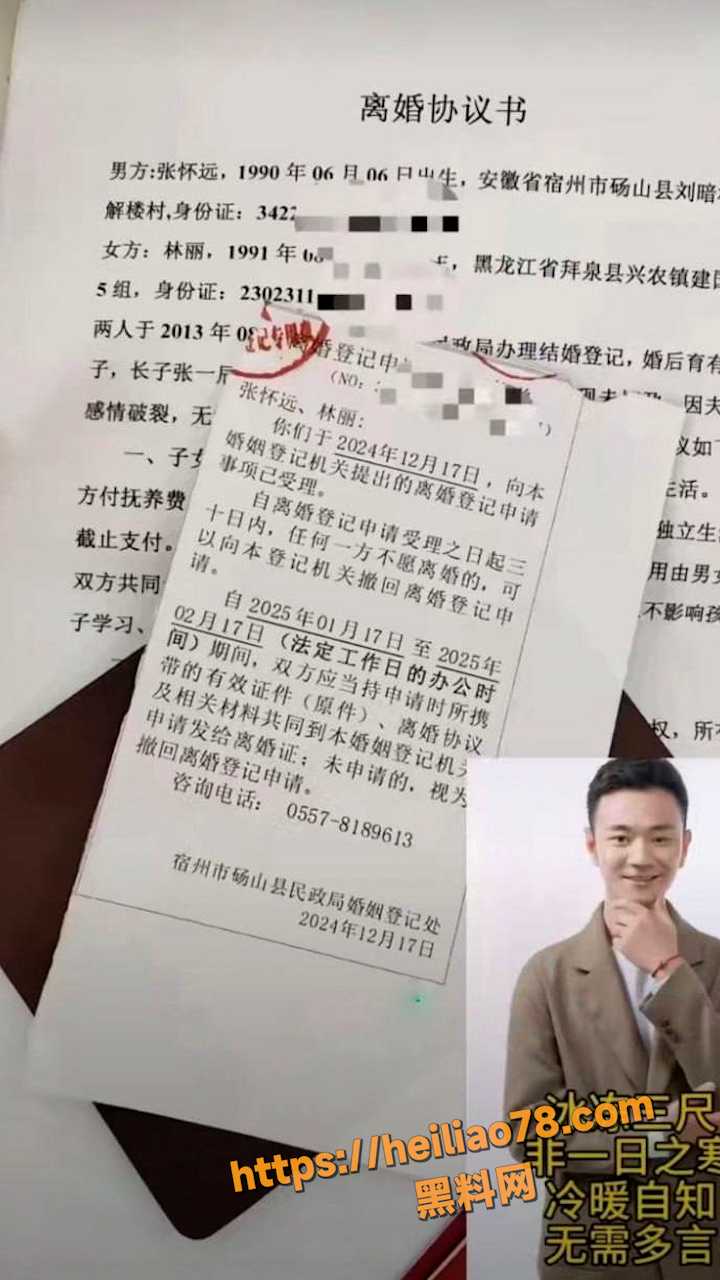 离婚协议书
男方:张怀远，1990 年 06 月 06 日出生，安徽省宿州市砀山县刘暗
解楼村,身份证：3422
女方：林丽，1991 年 08 ，黑龙江省拜泉县兴农镇建国
5 组，身份证：2302311
两人于 2013 年 08 政局办理结婚登记，婚后育有
子，长子张一 因夫
感情破裂，无 议如下
一、子女 生活。
方付抚养费 独立生
截止支付。 用由男女
双方共同 不影响孩
子学习、
权，所有
记专用
离婚登记申
（NO：
张怀远、林丽：
你们于2024年12月17日，向本
婚姻登记机关提出的离婚登记申请
事项已受理。
自离婚登记申请受理之日起三
十日内，任何一方不愿离婚的，可
以向本登记机关撤回离婚登记申
请。
自2025年01月17日至2025年
02月17日（法定工作日的办公时
间）期间，双方应当持申请时所携
带的有效证件（原件）、离婚协议
及相关材料共同到本婚姻登记机关
申请发给离婚证；未申请的，视为
撤回离婚登记申请。
咨询电话： 0557-8189613
宿州市砀山县民政局婚姻登记处
2024年12月17日
冰冻三尺
非一日之寒
冷暖自知
无需多言
https://heiliao78.com
黑料网